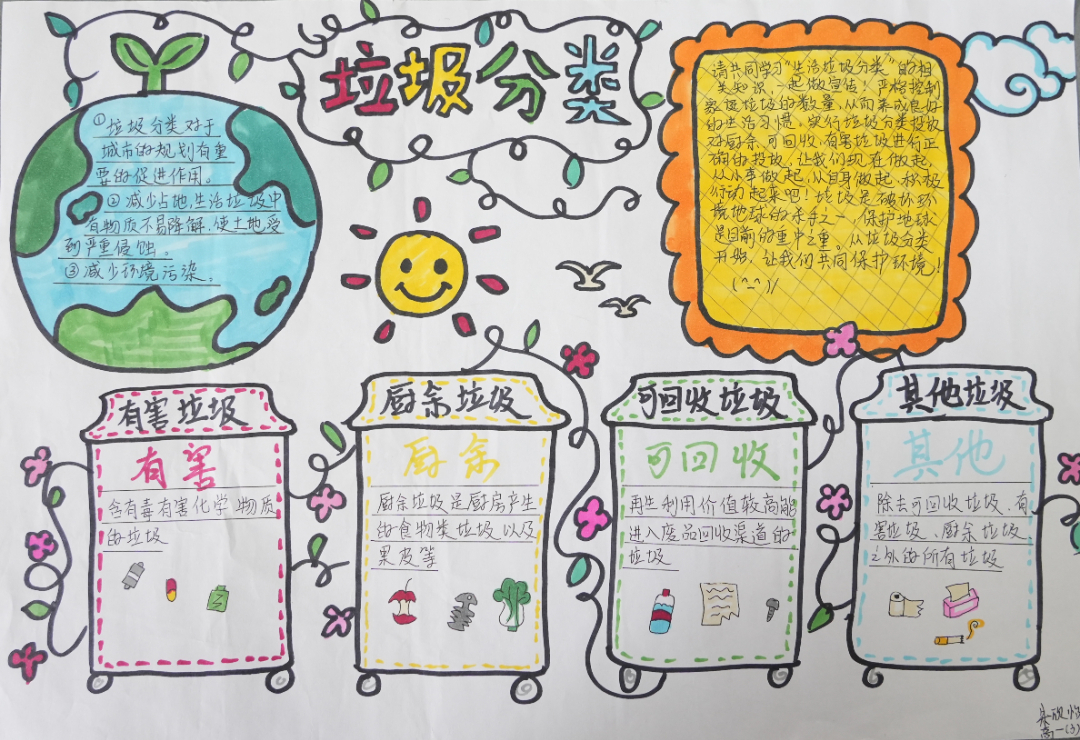 垃圾分类
①垃圾分类对于
城市的规划有重
要的促进作用。
②减少占地,生活垃圾中
有物质不易降解,使土地受
到严重侵蚀。
③减少环境污染。
请共同学习“生活垃圾分类”的相
关知识,一起做宣告!严格控制
家庭垃圾的数量,从而养成良好
的生活习惯,实行垃圾分类投放
对厨余、可回收、有害垃圾进行正
确的投放,让我们现在做起,
从小事做起,从自身做起,积极
行动起来吧!垃圾是破坏环
境地球的杀手之一,保护地球
是目前的重中之重。从垃圾分类
开始,让我们共同保护环境!
(^_^)/
有害垃圾
有害
含有毒有害化学物质
的垃圾
厨余垃圾
厨余
厨余垃圾是厨房产生
的食物类垃圾以及
果皮等
可回收垃圾
可回收
再生利用价值较高能
进入废品回收渠道的
垃圾
其他垃圾
其他
除去可回收垃圾、有
害垃圾、厨余垃圾、
之外的所有垃圾
高一(3)